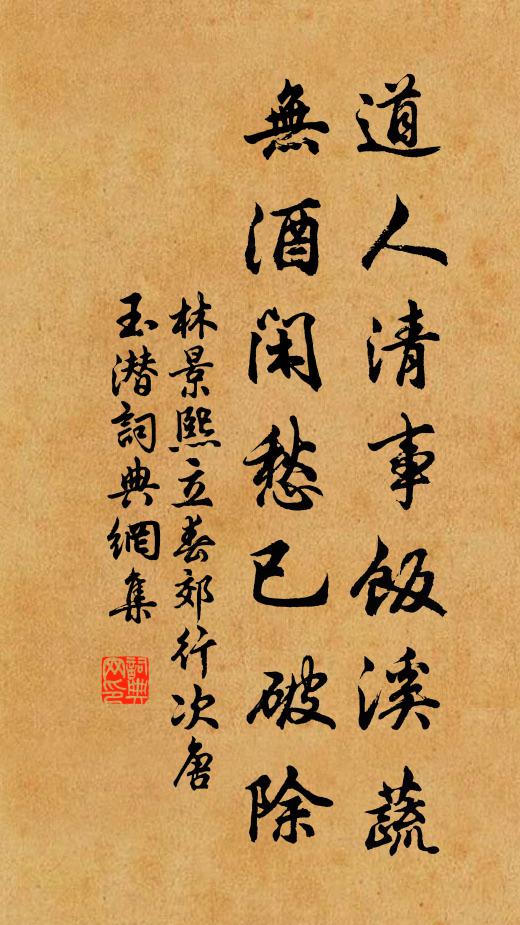 道人清事飯溪蔬
無酒閑愁已破除
林景熙立春郊行次唐
玉潛詞典網集
詞典網印